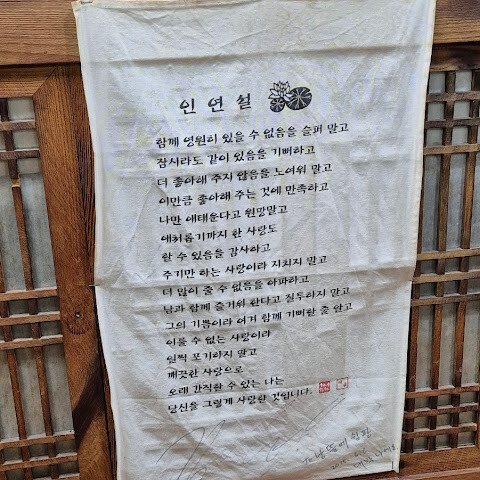 인연설
함께 영원히 있을 수 없음을 슬퍼 말고
잠시라도 같이 있음을 기뻐하고
더 좋아해 주지 않음을 노여워 말고
이만큼 좋아해 주는 것에 만족하고
나만 애태운다고 원망말고
애처롭기까지 한 사랑도
할 수 있음을 감사하고
주기만 하는 사랑이라 지치지 말고
더 많이 줄 수 없음을 아파하고
남과 함께 즐거워 한다고 질투하지 말고
그의 기쁨이라 여겨 함께 기뻐할 줄 알고
이룰 수 없는 사랑이라
일찍 포기하지 말고
깨끗한 사랑으로
오래 간직할 수 있는 나는
당신을 그렇게 사랑할 것입니다.